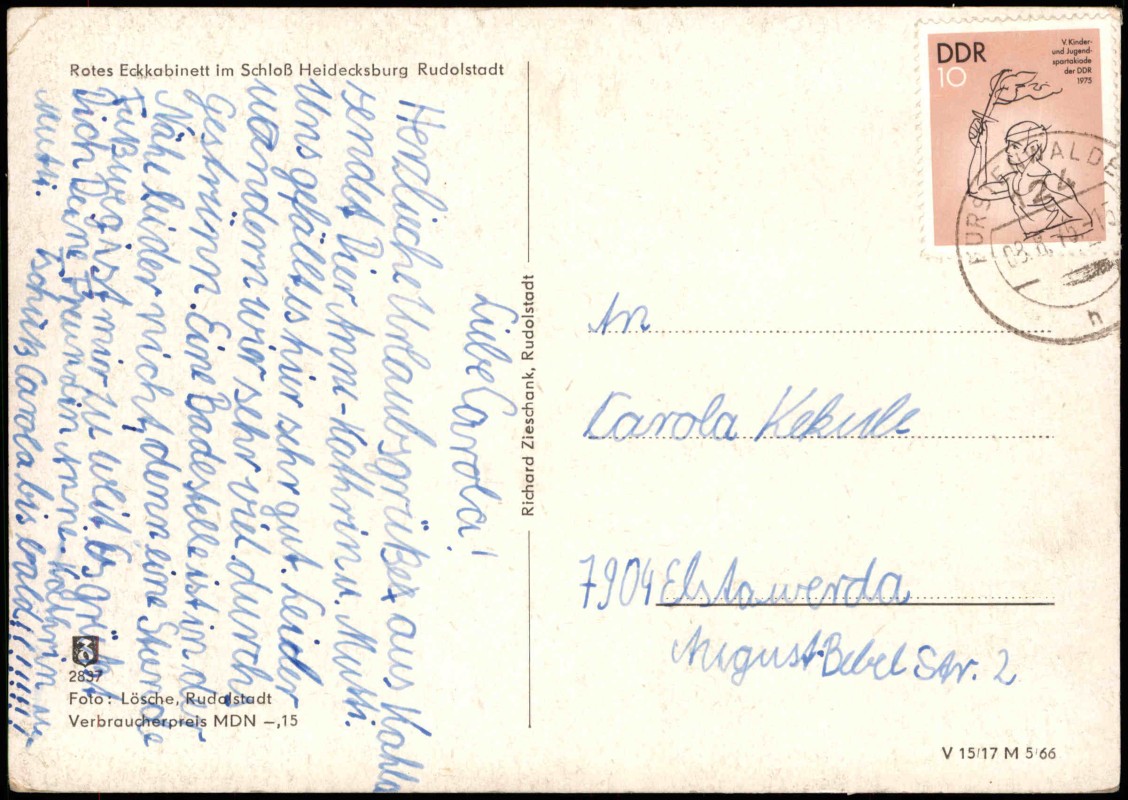 Rotes Eckkabinett im Schloß Heidecksburg Rudolstadt
Liebe Carola!
Herzliche Urlaubsgrüße aus Kahla
sendet Dier Ann-Kathrin u. Mutti.
Uns gefällt es hier sehr gut. Leider
wandern wier sehr viel durch
Gestrünn. Eine Badestelle ist in der
Nähe leider nicht, denn eine Stunde
Fußweg ist mir zu weit. Es grüßt
Dich Deine Freundin Ann-Kathrin u.
Mutti. Tschüß Carola bis bald!!!!!!!
2837
Foto: Lösche, Rudolstadt
Verbraucherpreis MDN –,15
Richard Zieschank, Rudolstadt
DDR
10
V. Kinder-
und Jugend-
spartakiade
der DDR
1975
24
h
An
Carola Kekule
7904 Elstawerda
August-Bebel Str. 2
V 15/17 M 5/66